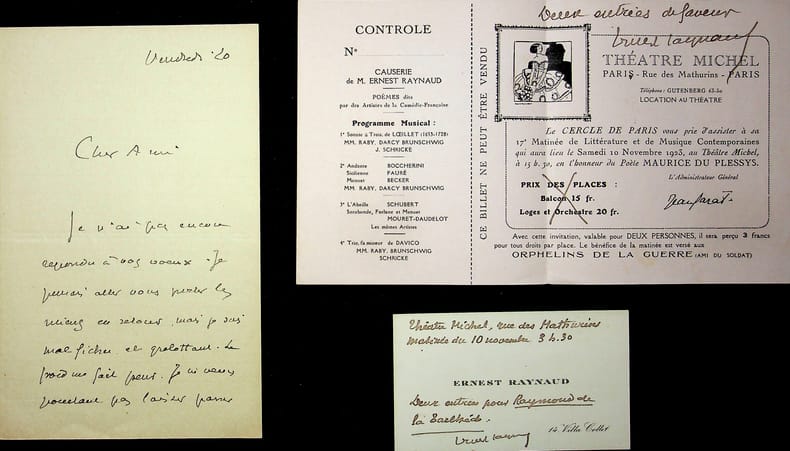 Vendredi 20
Cher Ami
Je n'ai pas encore
repondu à vos voeux. Je
pensais aller vous porter les
miens en retour, mais je suis
mal fichu et grelottant. Le
froid me fait peur. Je ne veux
pourtant pas laisser passer
CONTROLE
N°
CAUSERIE
de M. ERNEST RAYNAUD
POÈMES dits
par des Artistes de la Comédie-Française
Programme Musical :
1° Sonate à Trois, de LŒILLET (1653-1728)
MM. RABY, DARCY BRUNSCHWIG
J. SCHRICKE
2° Andante BOCCHERINI
Sicilienne FAURÉ
Menuet BECKER
MM. RABY, DARCY BRUNSCHWIG
3° L'Abeille SCHUBERT
Sarabande, Forlane et Menuet
MOURET-DAUDELOT
Les mêmes Artistes
4° Trio, fa mineur de DAVICO
MM. RABY, BRUNSCHWIG
SCHRICKE
CE BILLET NE PEUT ÊTRE VENDU
Deux entrées de faveur
Ernest Raynaud
THÉATRE MICHEL
PARIS - Rue des Mathurins - PARIS
Téléphone : GUTENBERG 63-30
LOCATION AU THÉATRE
Le CERCLE DE PARIS vous prie d'assister à sa
17e Matinée de Littérature et de Musique Contemporaines
qui aura lieu le Samedi 10 Novembre 1923, au Théâtre Michel,
à 15 h. 30, en l'honneur du Poète MAURICE DU PLESSYS.
L'Administrateur Général
PRIX DES PLACES :
Balcon 15 fr.
Loges et Orchestre 20 fr.
Avec cette invitation, valable pour DEUX PERSONNES, il sera perçu 3 francs
pour tous droits par place. Le bénéfice de la matinée est versé aux
ORPHELINS DE LA GUERRE (AMI DU SOLDAT)
Théâtre Michel, rue des Mathurins
Matinée du 10 novembre 3 h. 30
ERNEST RAYNAUD
Deux entrées pour Raymond de
la Tailhède.
14 Villa Collet
Ernest Raynaud